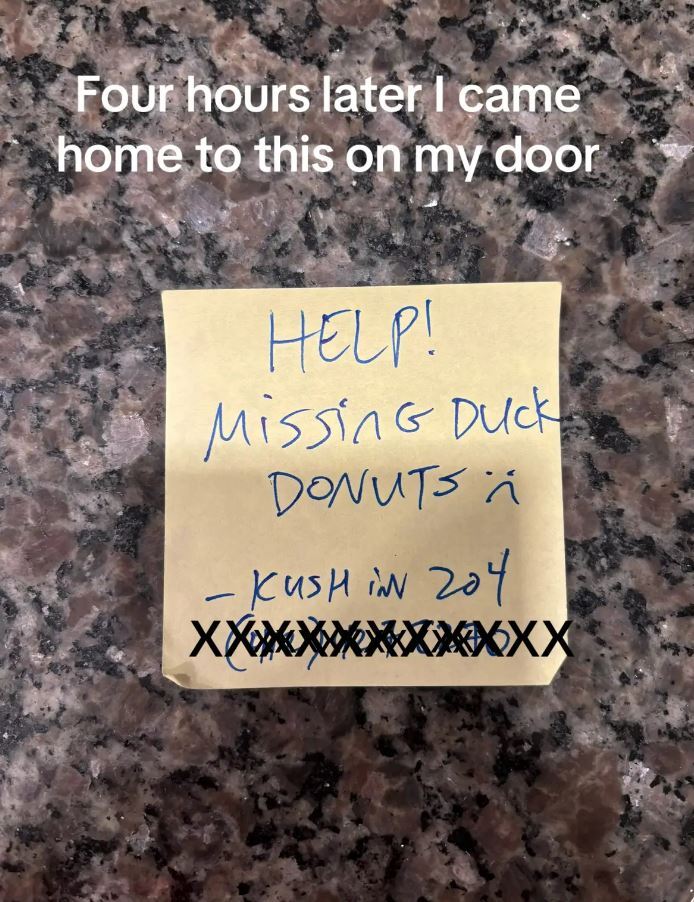 Four hours later I came
home to this on my door
HELP!
MissinG Duck
DONUTS :(
- KUSH iN 204
XXXXXXXXXXXX